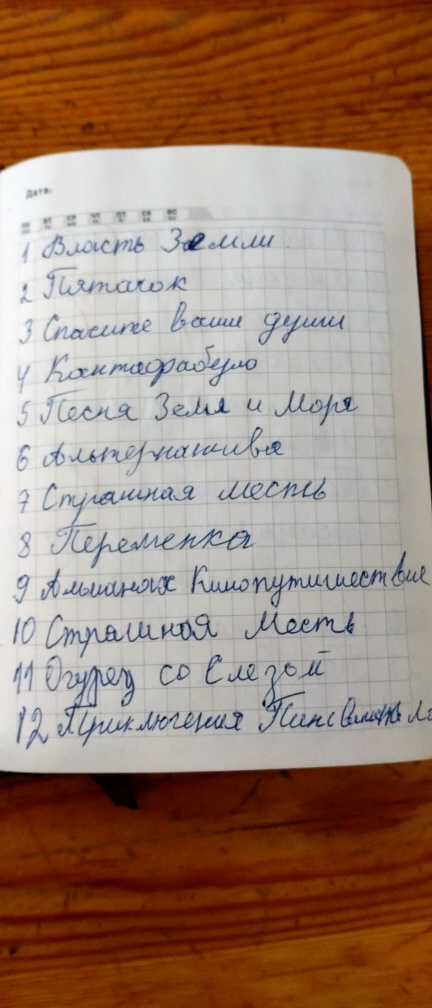 Дата:
пн вт ср чт пт сб вс
1 Власть Земли
2 Пятачок
3 Спасите ваши души
4 Кантафабуло
5 Песня Земли и Моря
6 Альтернатива
7 Страшная месть
8 Переменка
9 Альманах Кинопутишествие
10 Страшная Месть
11 Огурец со Слезой
12 Приключения